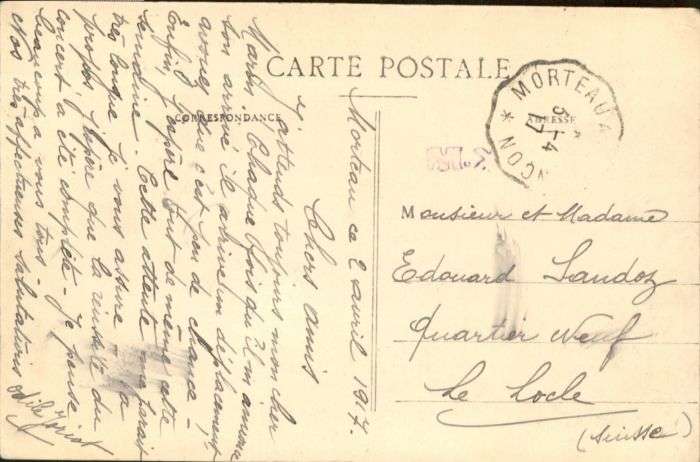 CARTE POSTALE
CORRESPONDANCE
ADRESSE
MORTEAU A
3-4
17
NÇON
Morteau ce 2 avril 1917.
Chers amis
J'attends toujours mon cher
Martin. Chaque fois qu'il m'annonce
son arrivée il arrive un déplacement,
avouez que c'est peu de chance –
Enfin j'espère tout de même cette
semaine. Cette attente me parait
très longue je vous assure. A
propos j'espère que la réussite du
concert a été complète – Je pense
beaucoup à vous tous
Nos très affectueuses salutations
Odile
Monsieur et Madame
Edouard Sandoz
Quartier Neuf
Le Locle
(Suisse)